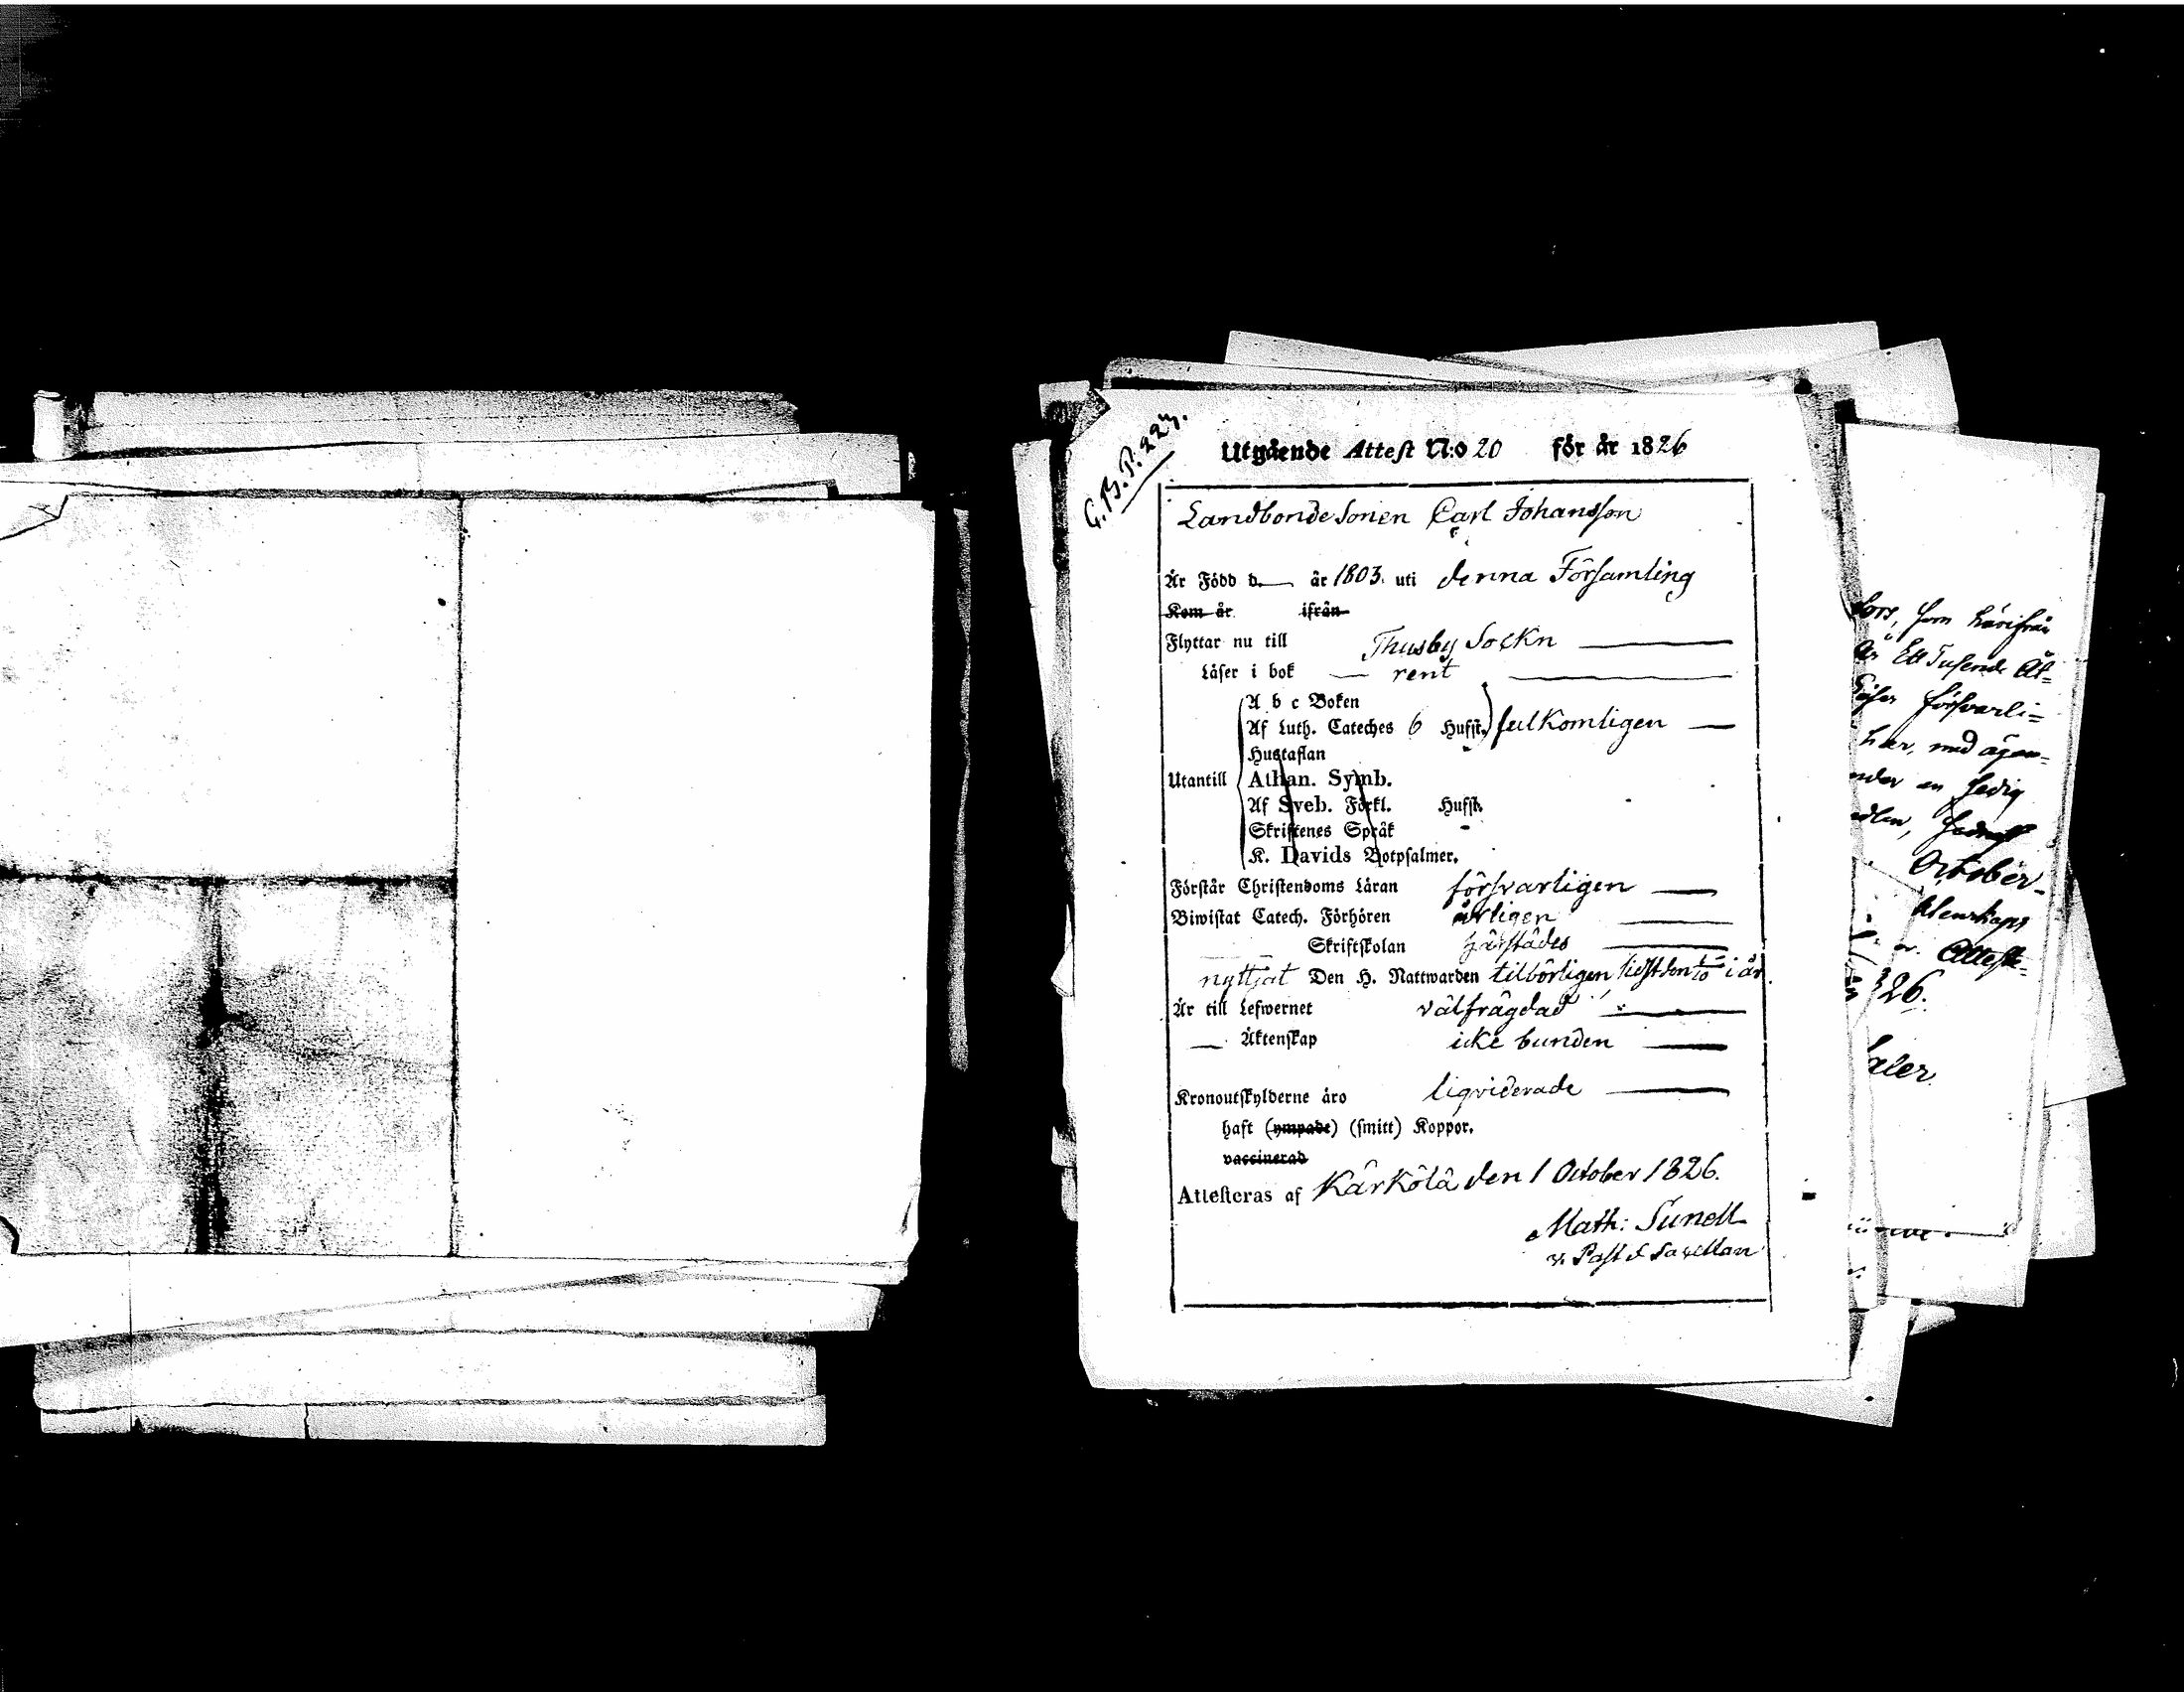 C.B.P. 223.
Utgående Attest N:o 20 för år 1826
Landbonde Sonen Carl Johansson
Är Född d. — år 1803. uti denna Församling
Kom år ifrån
Flyttar nu till Thusby Sockn —
Läser i bok — rent —
A b c Boken
Af Luth. Cateches 6 Hufst. fulkomligen —
Hustaflan
Utantill Athan. Symb.
Af Sveb. Förkl. Hufst.
Skriftenes Språk
K. Davids Botpsalmer.
Förstår Christendoms Läran försvarligen —
Biwistat Catech. Förhören årligen —
— Skriftskolan härstädes —
nyttjat Den H. Nattwarden tilbörligen, sidst den i år
Är till Lefwernet välfrägdad —
— Äktenskap icke bunden —
Kronoutskylderne äro liqviderade —
haft (ympade) (smitt) Koppor.
vaccinerad
Attesteras af Kärkölä den 1 October 1826.
Math: Sunell
v. Past. & Sacellan
som härifrån
Ett Tusende Åt=
försvarli=
här, med ägan=
en ledig
October
Attest
326.